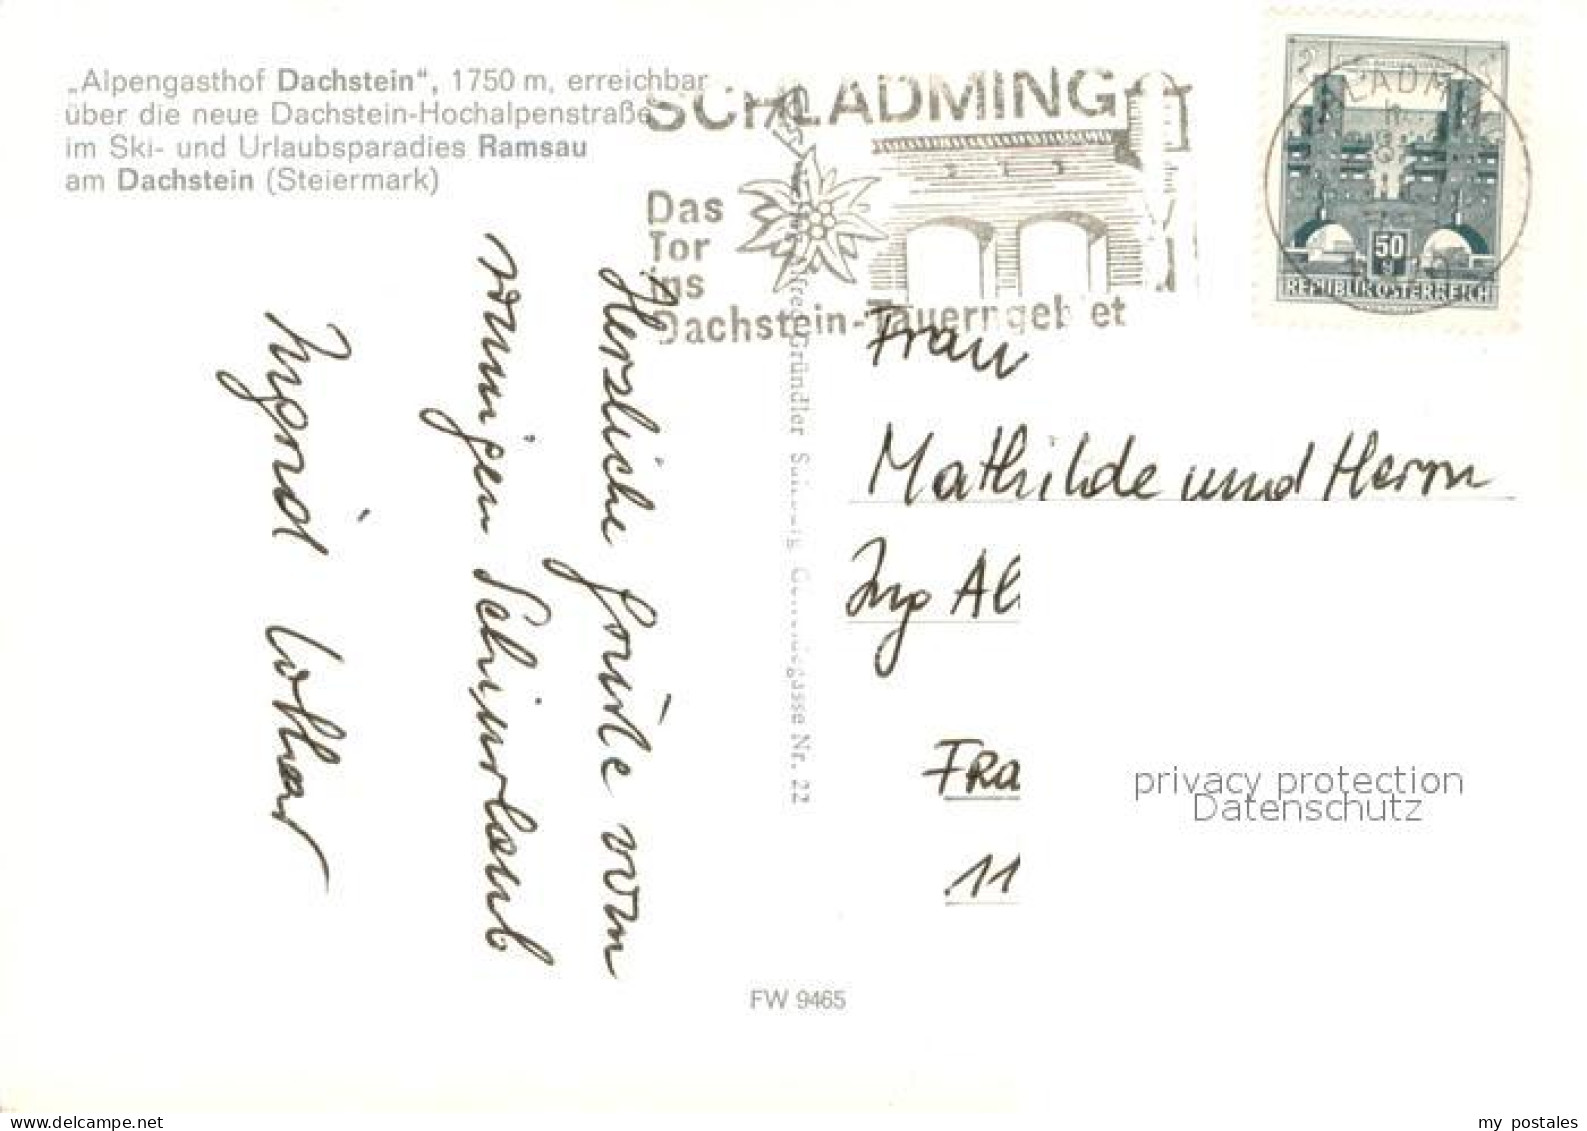 „Alpengasthof Dachstein“, 1750 m, erreichbar
über die neue Dachstein-Hochalpenstraße
im Ski- und Urlaubsparadies Ramsau
am Dachstein (Steiermark)
SCHLADMING
Das
Tor
ins
Dachstein-Tauerngebiet
SCHLADMING
2 50 g
REPUBLIK ÖSTERREICH
Herzliche Grüße vom
sonnigen Schiurlaub
Ingrid Lothar
Gründler Nr. 22
Frau
Mathilde und Herrn
Ing Al
FRA
11
privacy protection
Datenschutz
FW 9465
www.delcampe.net
my postales